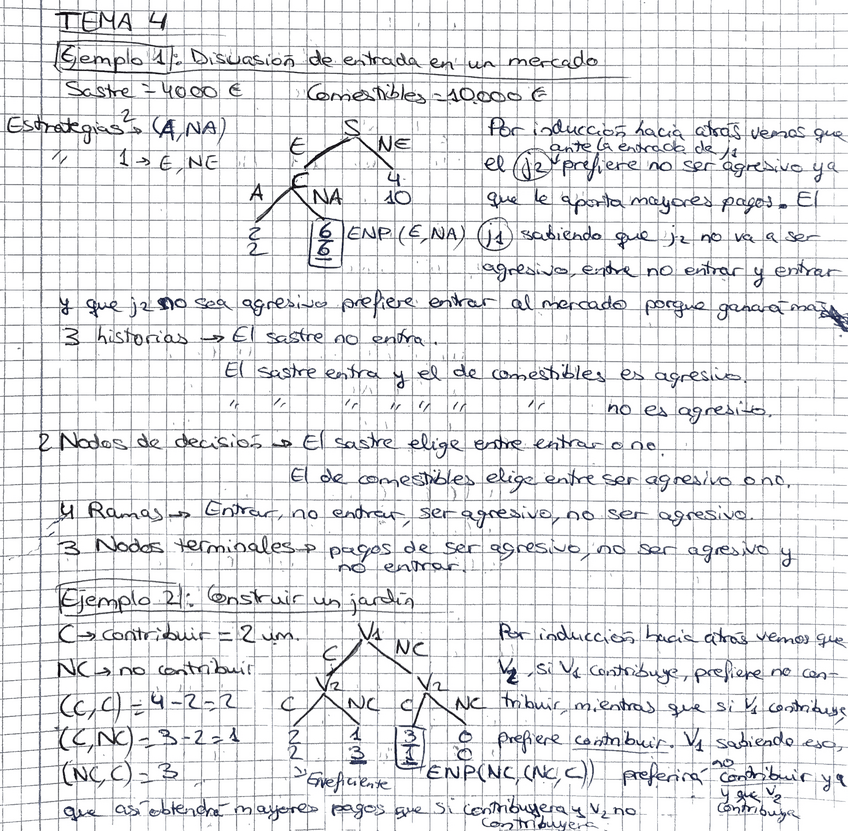 TEMA 4
Ejemplo 1: Disuasión de entrada en un mercado
Sastre = 4000 € Comestibles = 10.000 €
Estrategias 2 → (A, NA)
" 1 → E, NE
S
E NE
C 4
10
A NA
2 6
2 6
ENP (E, NA)
Por inducción hacia atrás vemos que
ante la entrada de j1
el j2 prefiere no ser agresivo ya
que le aporta mayores pagos. El
j1 sabiendo que j2 no va a ser
agresivo, entre no entrar y entrar
y que j2 no sea agresivo prefiere entrar al mercado porque ganará más
3 historias → El sastre no entra.
El sastre entra y el de comestibles es agresivo.
" " " " " " " no es agresivo.
2 Nodos de decisión → El sastre elige entre entrar o no.
El de comestibles elige entre ser agresivo o no.
4 Ramas → Entrar, no entrar, ser agresivo, no ser agresivo.
3 Nodos terminales → pagos de ser agresivo, no ser agresivo y
no entrar.
Ejemplo 2: Construir un jardín
C → contribuir = 2 um.
NC → no contribuir
(C, C) = 4 - 2 = 2
(C, NC) = 3 - 2 = 1
(NC, C) = 3
V1
C NC
V2 V2
C NC C NC
2 1 3 0
2 3 1 0
ENP (NC, (NC, C))
Por inducción hacia atrás vemos que
V2, si V1 contribuye, prefiere no con-
tribuir, mientras que si V1 contribuye,
prefiere contribuir. V1 sabiendo eso,
preferirá no contribuir ya
y que V2
contribuya
que así obtendrá mayores pagos que si contribuyera y V2 no
contribuyera.